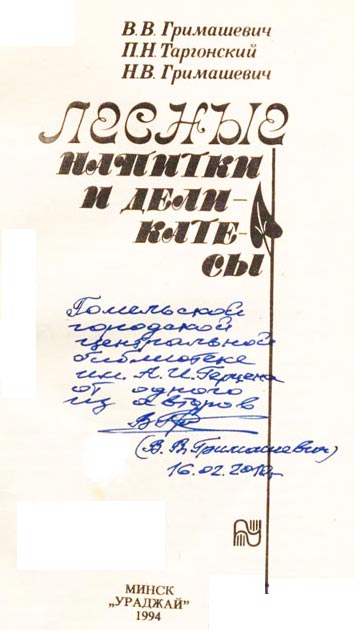 В. В. Гримашевич
П.Н. Таргонский
Н.В. Гримашевич
ЛЕСНЫЕ
НАПИТКИ
И ДЕЛИ-
КАТЕ-
СЫ
Гомельской
городской
центральной
библиотеке
им. А. И. Герцена
от одного
из авторов
(В. В. Гримашевич)
16.02.2010г.
МИНСК
„УРАДЖАЙ"
1994